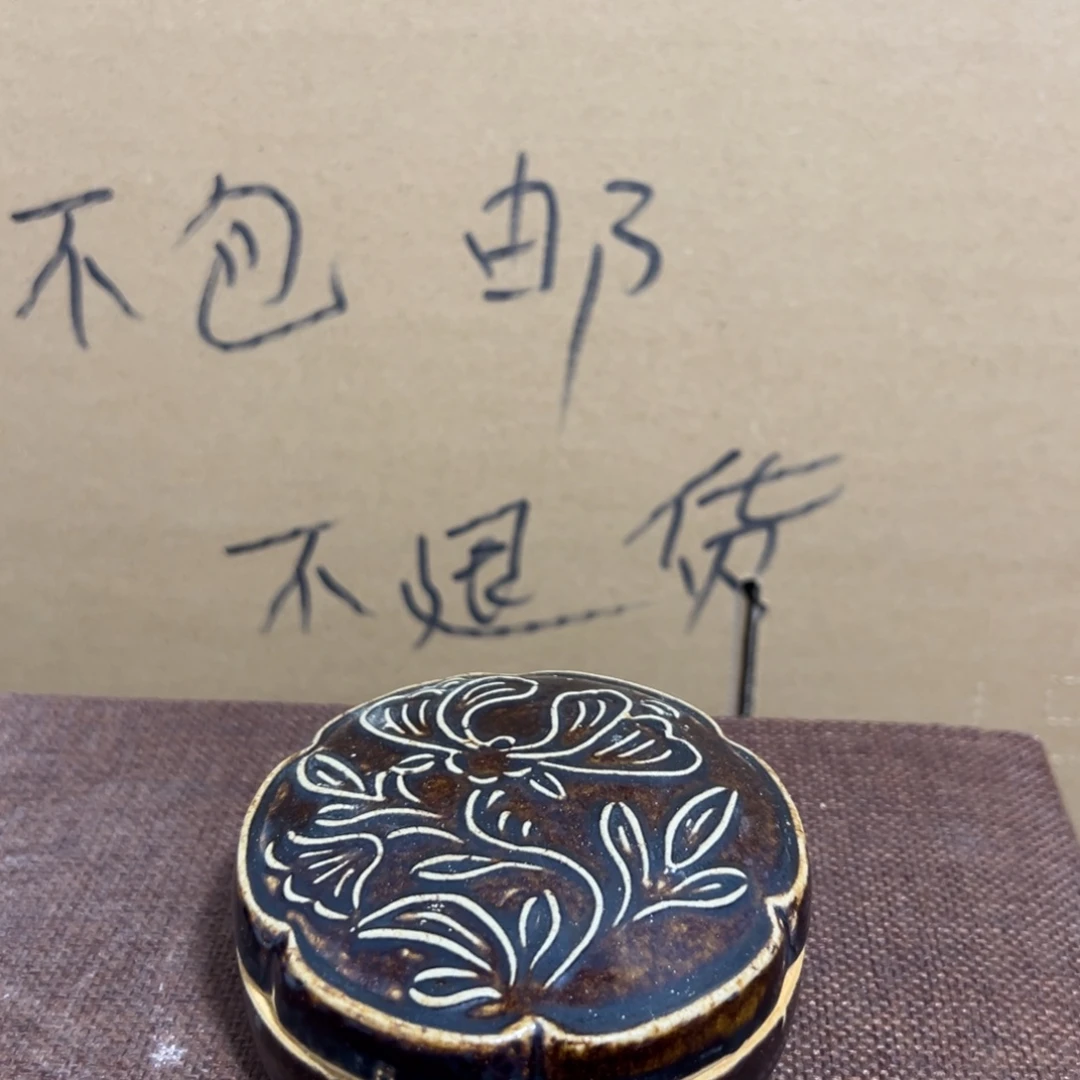 不包邮
不退货